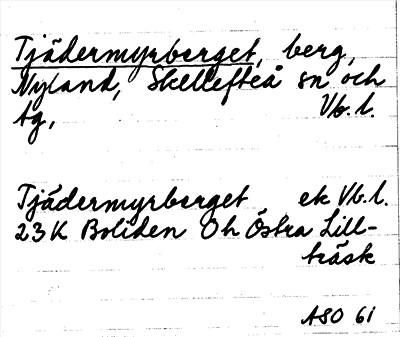 Tjädermyrberget, berg,
Nyland, Skellefteå sn och
tg, Vb. l.
Tjädermyrberget ek Vb. l.
23K Boliden 0h Östra Lill-
träsk
ASO 61